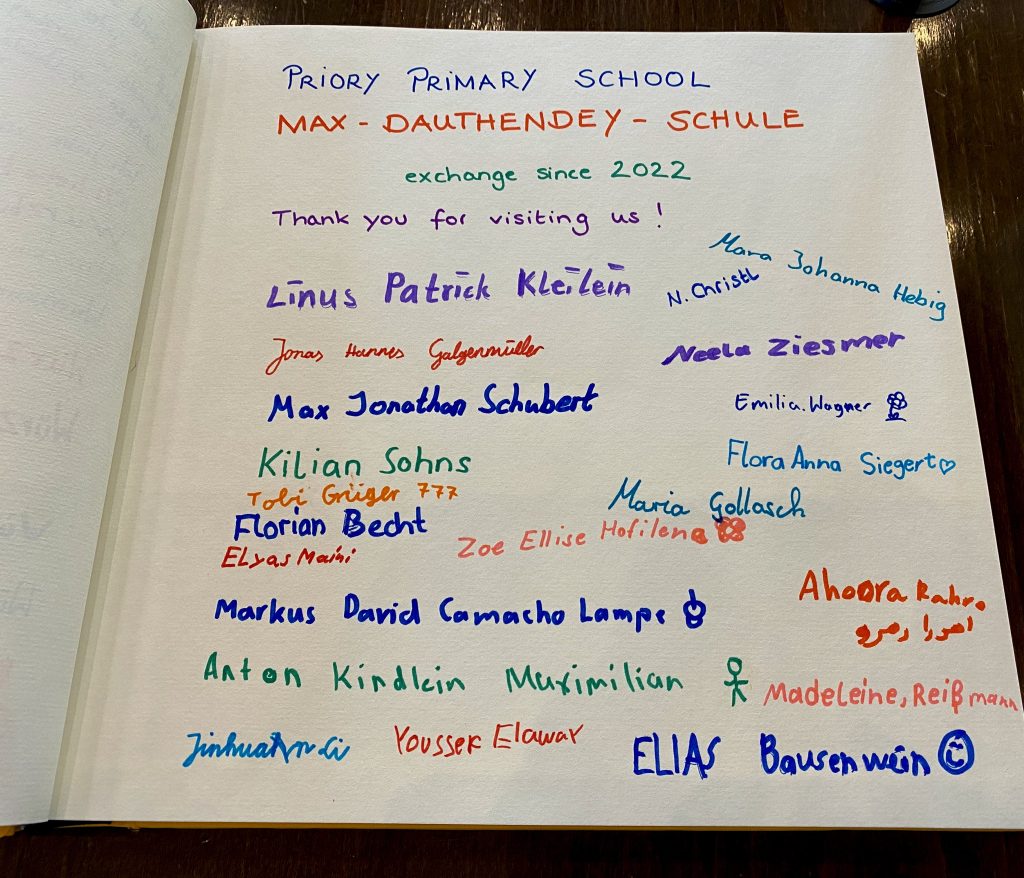 PRIORY PRIMARY SCHOOL
MAX - DAUTHENDEY - SCHULE
exchange since 2022
Thank you for visiting us !
Mara Johanna Hebig
Linus Patrick Kleilein
N. Christl
Jonas Hannes Galgenmüller
Neela Ziesmer
Max Jonathan Schubert
Emilia. Wagner
Kilian Sohns
Flora Anna Siegert
Tobi 777
Maria Gollasch
Florian Becht
Zoe Ellise Hofilena
Elyas
Ahoora
اهورا
Markus David Camacho Lampe
Anton Kindlein Maximilian
Madeleine, Reißmann
Li
Elawar
ELIAS Bausenwein